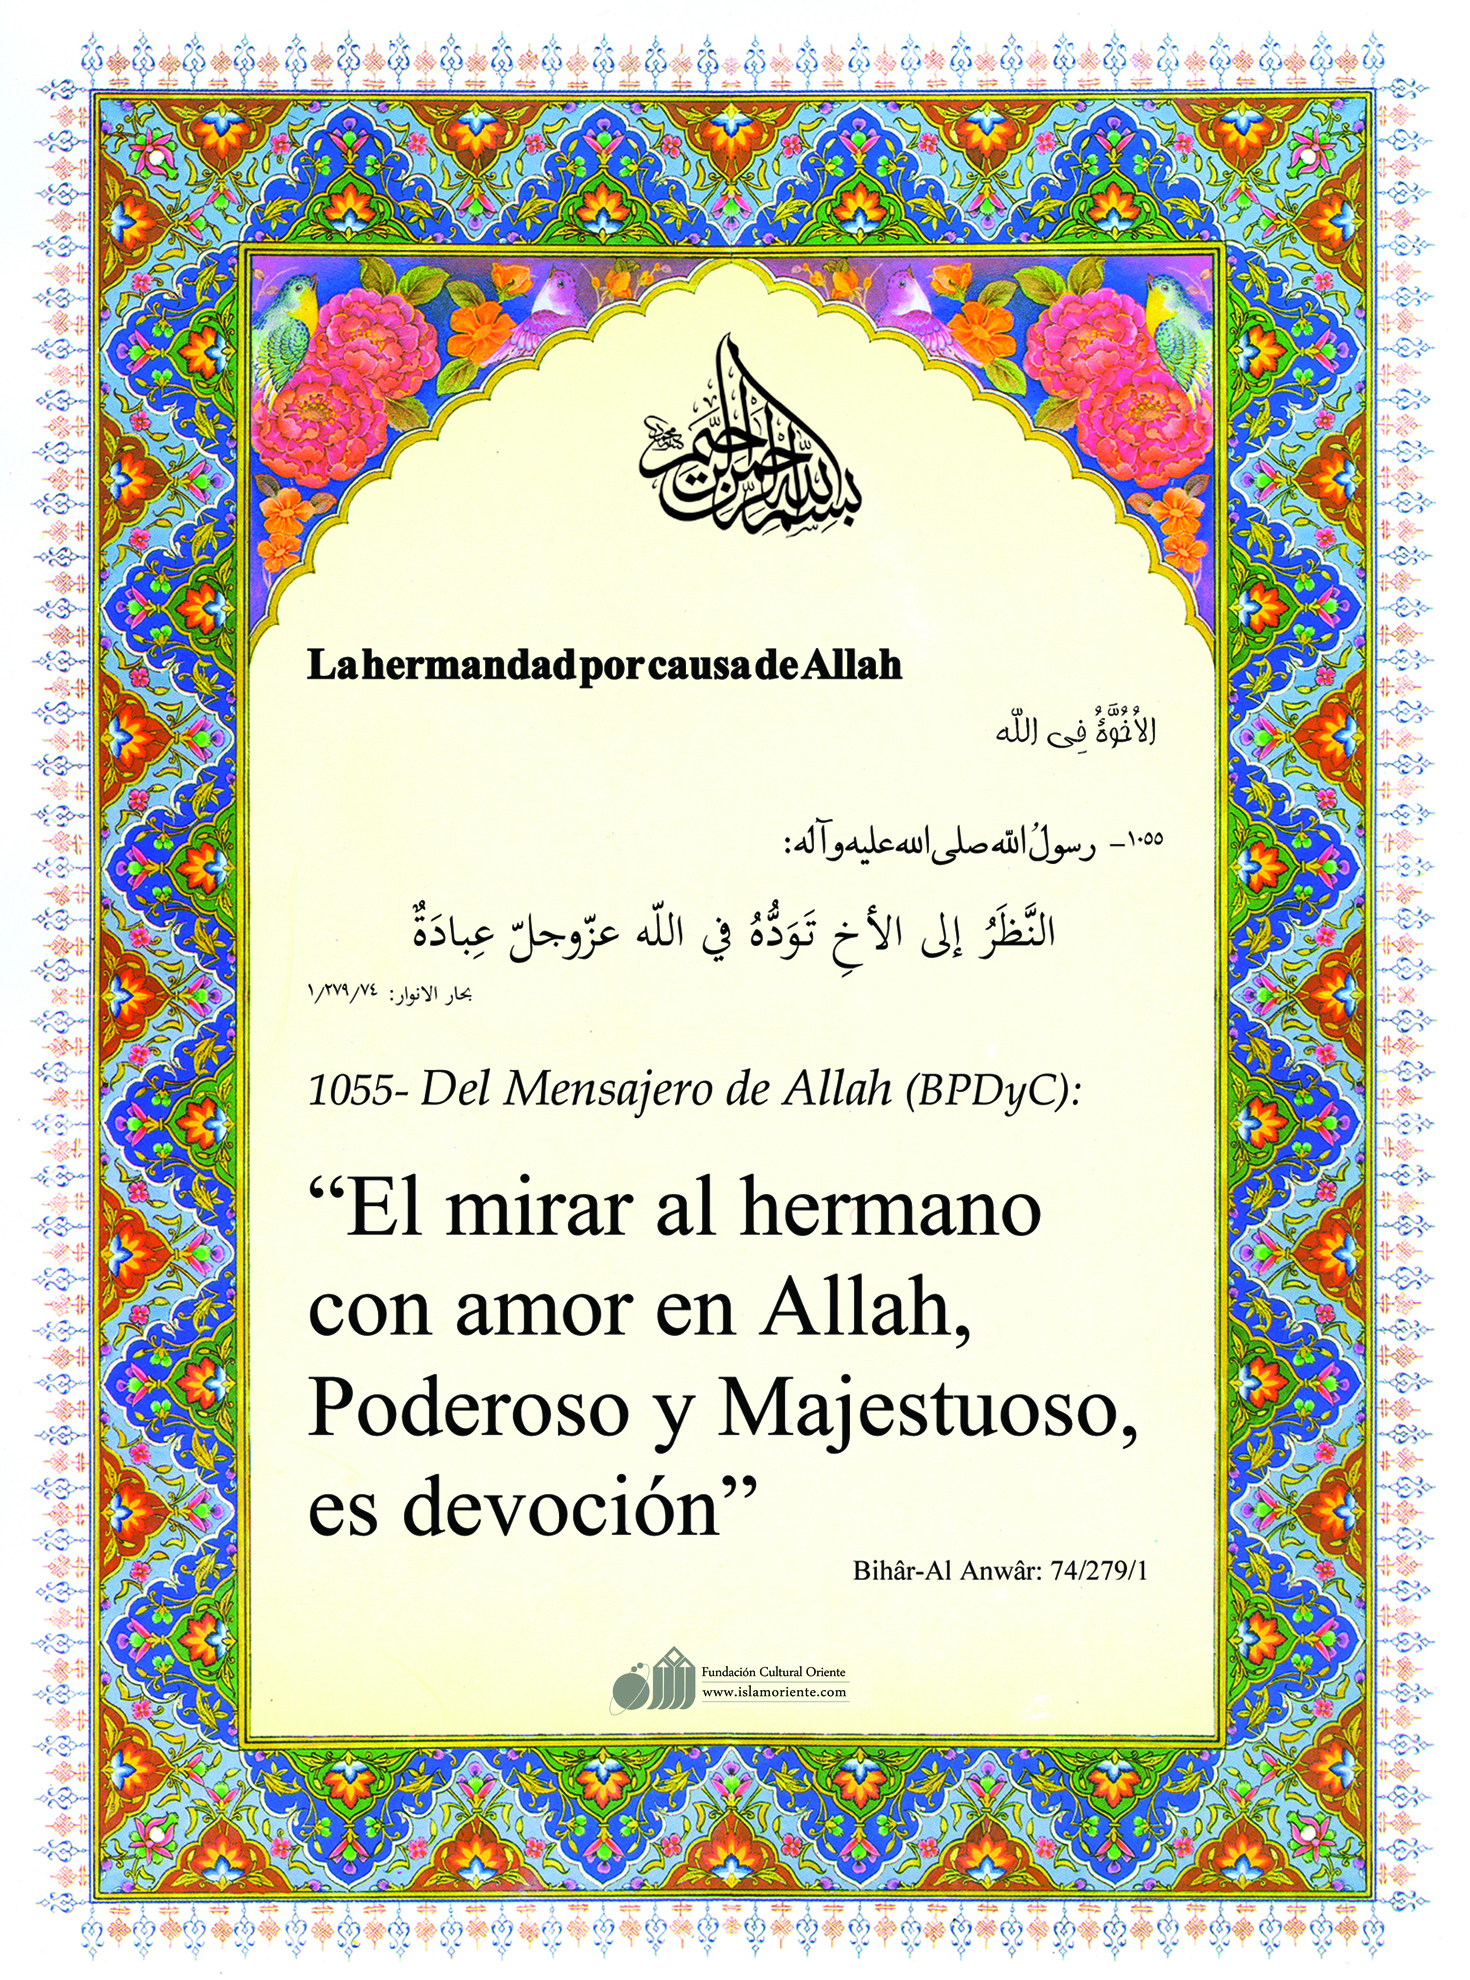 بسم الله الرحمن الرحيم
La hermandad por causa de Allah
الاُخُوَّةُ فِي اللّه
١٠٥٥– رسولُ اللّه صلی الله علیه وآله:
النَّظَرُ إلى الأخِ تَوَدُّهُ في اللّه عزّوجلّ عِبادَةٌ
بحار الانوار: ٧٤/٢٧٩/١
1055- Del Mensajero de Allah (BPDyC):
“El mirar al hermano
con amor en Allah,
Poderoso y Majestuoso,
es devoción”
Bihâr-Al Anwâr: 74/279/1
Fundación Cultural Oriente
www.islamoriente.com